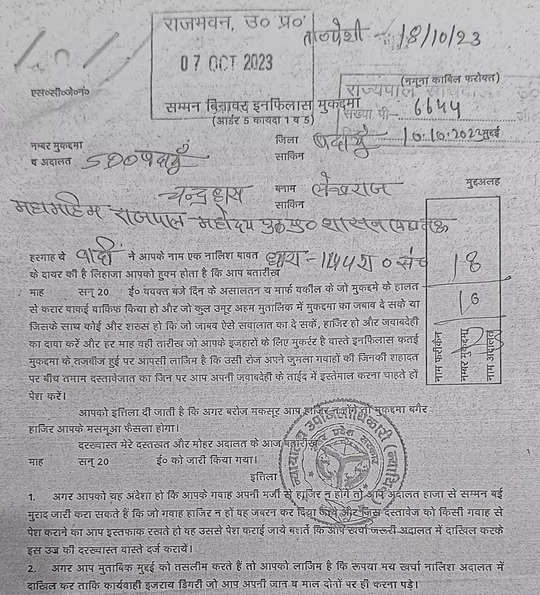 राजभवन, उ० प्र०
07 OCT 2023
ता०पेशी - 18/10/23
(नमूना काबिल फरोख्त)
राज्यपाल
एस०सी०जे०नं०
सम्मन बिनाबर इनफिलास मुकद्मा
(आर्डर 5 कायदा 1 व 5)
संख्या पी- 6644
10.10.2023
नम्बर मुकद्मा
व अदालत SDO बदायूँ
जिला बदायूँ मुद्दई
साकिन
चन्द्रहास बनाम लेखराज मुद्दअलह
साकिन
महामहिम राजपाल महोदय उ०प्र० शासन लखनऊ
हरगाह चे वादी ने आपके नाम एक नालिश बाबत धारा:- 144 रा० संच
के दायर की है लिहाजा आपको हुक्म होता है कि आप बतारीख
माह सन् 20 ई० बवक्त बजे दिन के असालतन य मार्फ वकील के जो मुकद्मे के हालत
से करार वाकई वाकिफ किया हो और जो कुल उमूर अहम मुतालिक में मुकद्मा का जबाव दे सके या
जिसके साथ कोई और शख्स हो कि जो जाबब ऐसे सवालात का दे सके, हाजिर हो और जवाबदेही
का दावा करें और हर माह वही तारीख जो आपके इजहारों के लिए मुकर्रर है वास्ते इनफिलास कतई
मुकद्मा के तजबीज हुई पर आपसी लाजिम है कि उसी रोज अपने जुमला गवाहों की जिनकी शहादत
पर बीच तमाम दस्तावेजात का जिन पर आप अपनी जवाबदेही के ताईद में इस्तेमाल करना चाहते हों
पेश करें।
18
10
नाम फरीकैन
नम्बर मुकद्मा
नाम अदालत
आपको इत्तिला दी जाती है कि अगर बरोज मकसूर आप हाजिर न होंगे तो मुकद्मा बगैर
हाजिर आपके मसमूआ फैसला होगा।
दरख्वास्त मेरे दस्तखत और मोहर अदालत के आज बतारीख
माह सन् 20 ई० को जारी किया गया।
इत्तिला
1. अगर आपको यह अंदेशा हो कि आपके गवाह अपनी मर्जी से हाजिर न होंगे तो आप अदालत हाजा से सम्मन बई
मुराद जारी करा सकते हैं कि जो गवाह हाजिर न हों वह जबरन कर दिया जाये और जिस दस्तावेज को किसी गवाह से
पेश कराने का आप इस्तफाक रखते हो वह उससे पेश कराई जाये बशर्ते कि आप खर्चा जरूरी अदालत में दाखिल करके
इस उज्र की दरख्वास्त वास्ते दर्ज करायें।
2. अगर आप मुताबिक मुद्दई को तसलीम करते हैं तो आपको लाजिम है कि रूपया मय खर्चा नालिश अदालत में
दाखिल कर ताकि कार्यवाही इजराय डिगरी जो आप अपनी जान व माल दोनों पर ही करना पड़े।